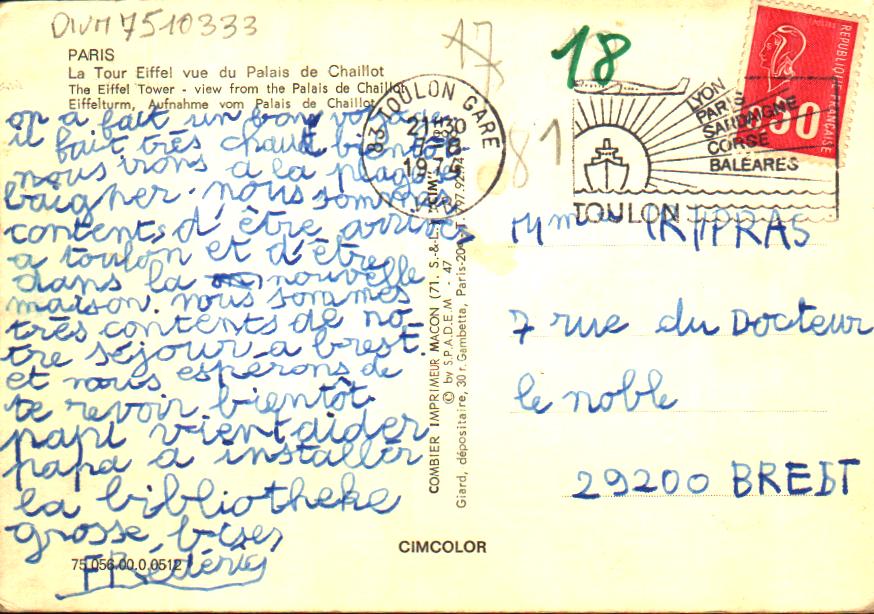 DIVM 7510333
PARIS
La Tour Eiffel vue du Palais de Chaillot
The Eiffel Tower - view from the Palais de Chaillot
Eiffelturm, Aufnahme vom Palais de Chaillot
on a fait un bon voyage
il fait très chaud bientôt
nous irons a la plage se
baigher. nous sommes
contents d'être arrivés
a toulon et d'être
dans la nouvelle
maison. nous sommes
très contents de no
tre séjour a brest.
et nous espérons de
te revoir bientôt.
papi vient aider
papa a installer
la bibliotheke
grosse bises
FRédéric
75.056.00.0.0512
CIMCOLOR
COMBIER IMPRIMEUR MACON (71. S.-&-L.) "CIM"
© by S.P.A.D.E.M. - 47
Giard, dépositaire, 30 r. Gambetta, Paris-20e - T. 797.92.14
17
18
81
83 TOULON GARE
21H30
7-8
1975
LYON
PARIS
SARDAIGNE
CORSE
BALÉARES
TOULON
REPUBLIQUE FRANÇAISE
Mme
7 rue du Docteur
le noble
29200 BREST